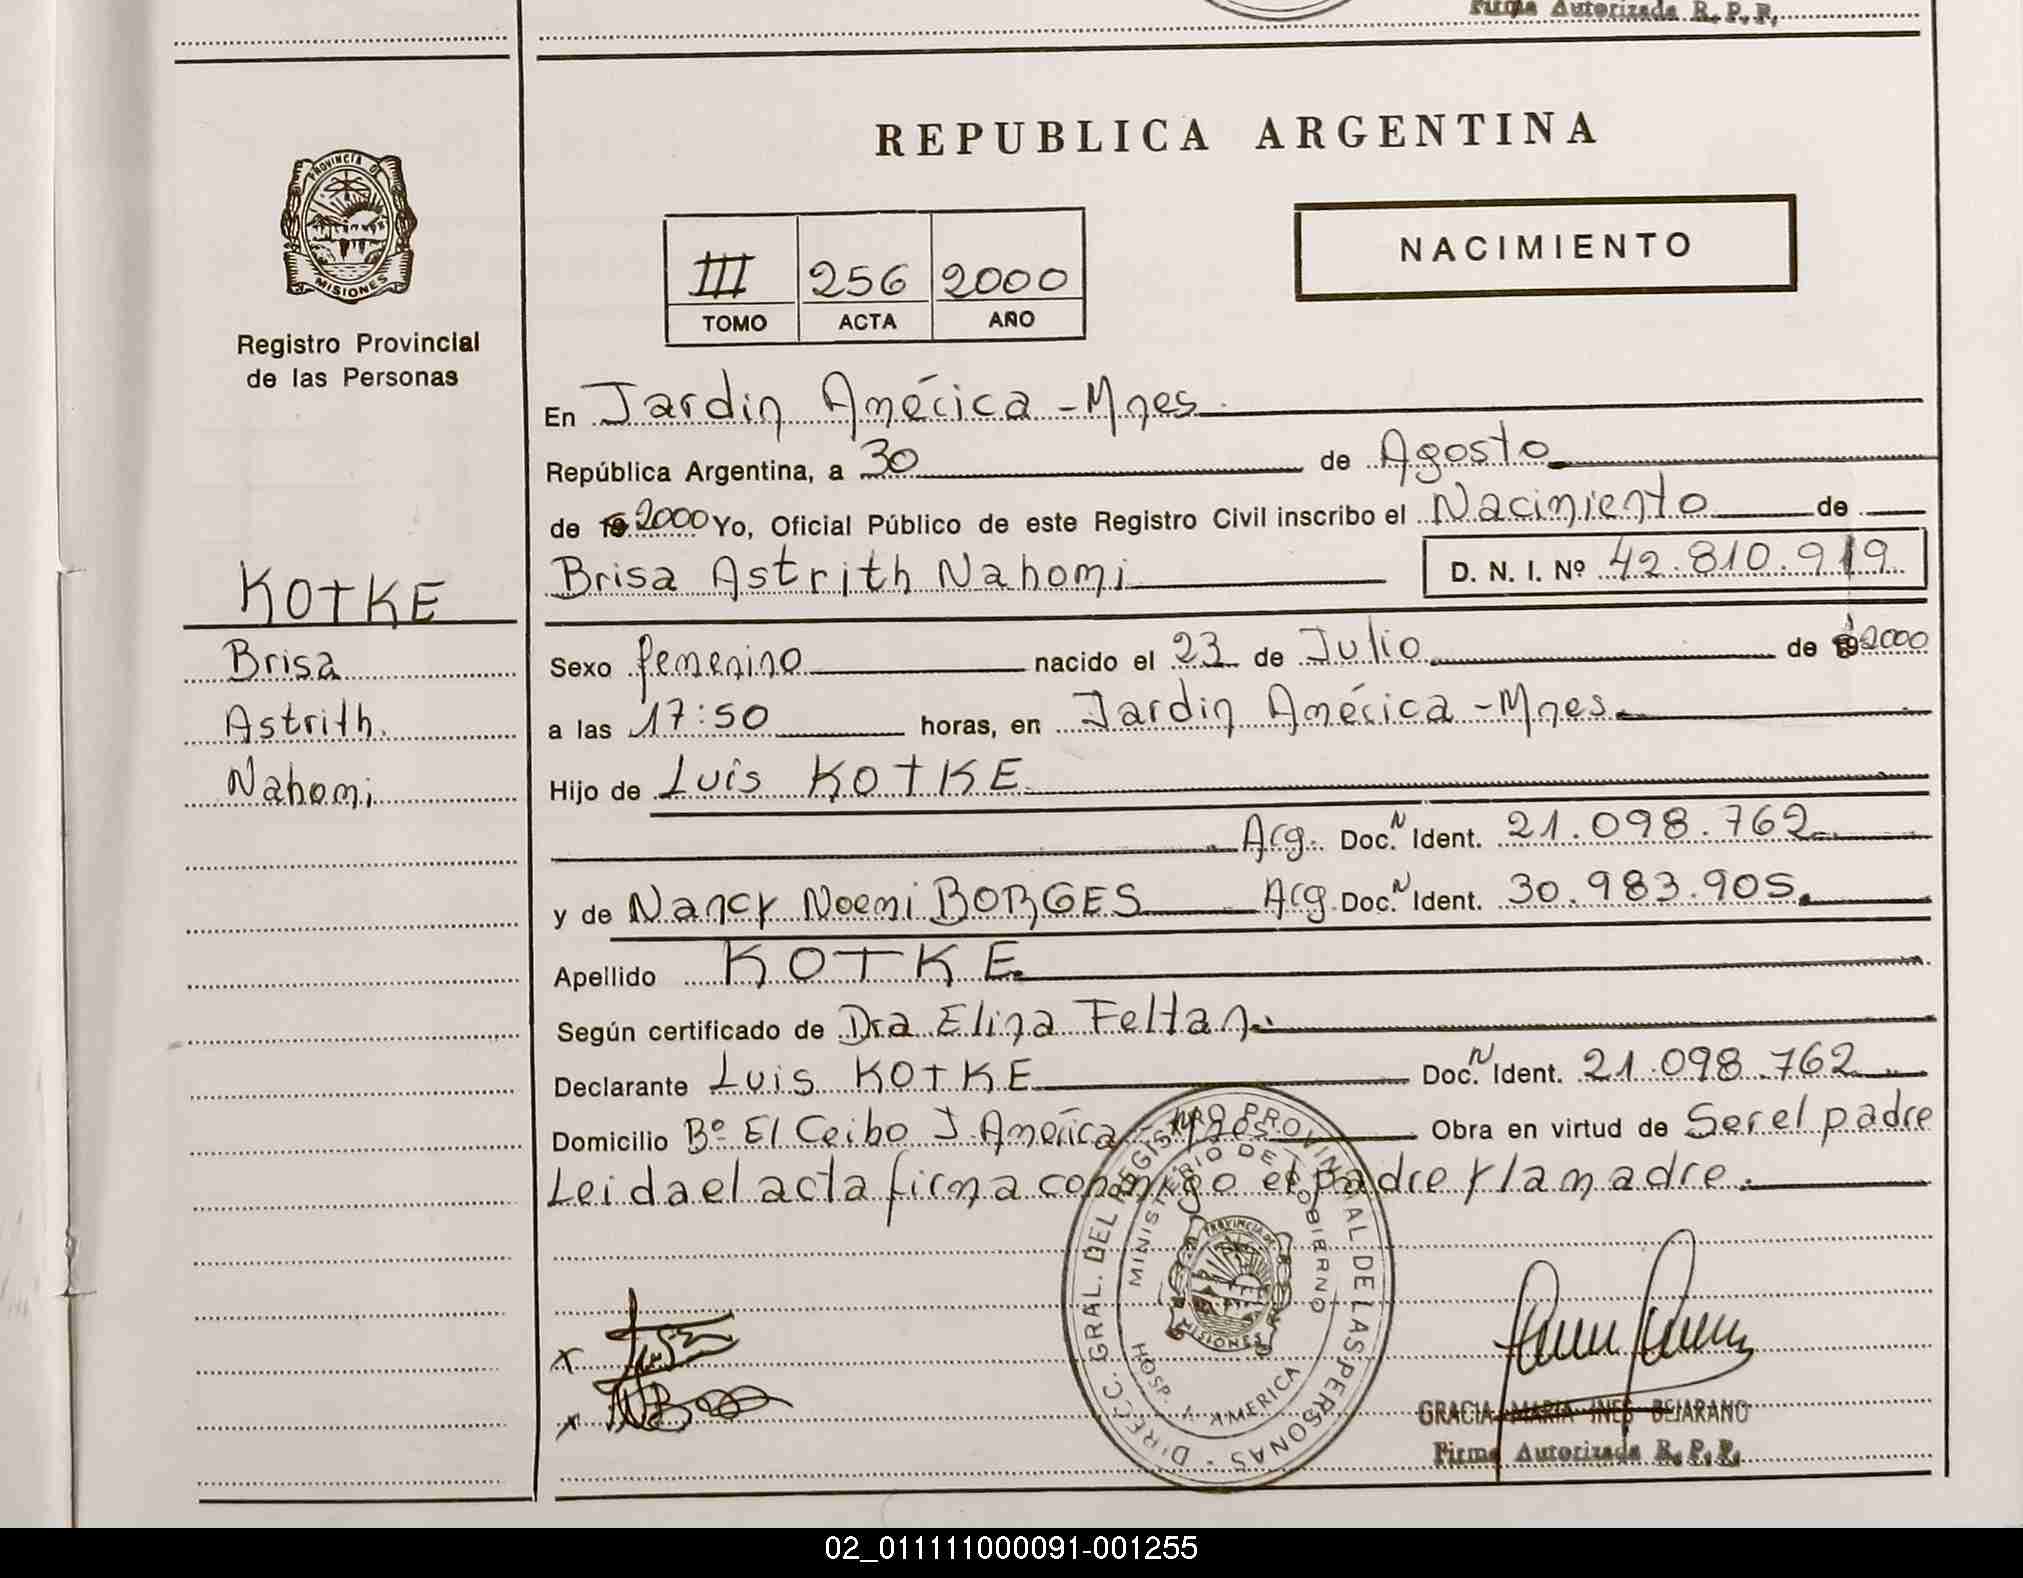 Firma Autorizada R. P. P.
REPUBLICA ARGENTINA
PROVINCIA DE
MISIONES
NACIMIENTO
III 256 2000
TOMO ACTA AÑO
Registro Provincial
de las Personas
En Jardin América - Mnes.
República Argentina, a 30 de Agosto
de 2000 Yo, Oficial Público de este Registro Civil inscribo el Nacimiento de
KOTKE
Brisa Astrith Nahomi D. N. I. Nº 42.810.919
Brisa
Sexo femenino nacido el 23 de Julio de 2000
Astrith
a las 17:50 horas, en Jardin América - Mnes.
Nahomi
Hijo de Luis KOTKE
Arg. Doc. N Ident. 21.098.762
y de Nancy Noemi BORGES Arg Doc. N Ident. 30.983.905.
Apellido KOTKE
Según certificado de Dra Elina Feltan.
Declarante Luis KOTKE Doc. N Ident. 21.098.762
Domicilio Bº El Ceibo J. América - Mnes Obra en virtud de Ser el padre
Leida el acta firma conmigo el padre y la madre.
DIRECC. GRAL. DEL REGISTRO PROVINCIAL DE LAS PERSONAS
MINISTERIO DE GOBIERNO
PROVINCIA DE
MISIONES
HOSP. J. AMERICA
x
x
GRACIA MARIA INES BEJARANO
Firma Autorizada R. P. P.
02_011111000091-001255